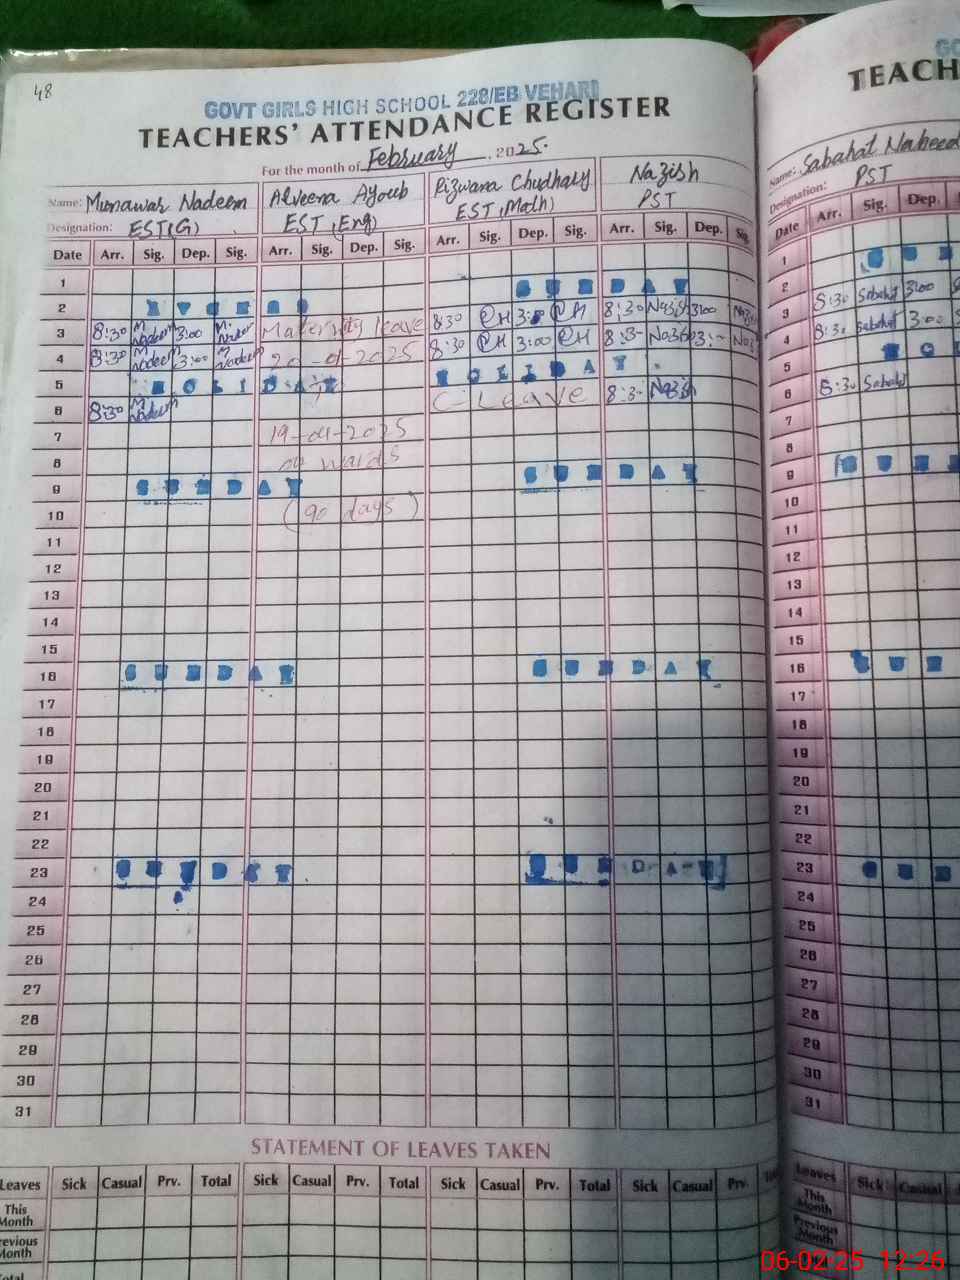 48
GOVT GIRLS HIGH SCHOOL 228/EB VEHARI
TEACHERS' ATTENDANCE REGISTER
For the month of February, 2025.
Name: Munawar Nadeem Alveena Ayoub Rizwana Chudhary Nazish
Designation: EST(G) EST (Eng) EST (Math) PST
Date Arr. Sig. Dep. Sig. Arr. Sig. Dep. Sig. Arr. Sig. Dep. Sig. Arr. Sig. Dep. Sig.
1
2 SUNDAY SUNDAY
3 8:30 M. Nadeem 3:00 M. Nadeem Maternity leave 8:30 RH 3:00 RH 8:30 Nazish 3:00 Nazish
4 8:30 M Nadeem 3:00 M Nadeem 20-01-2025 8:30 RH 3:00 RH 8:3- Nazish 3:-
5 HOLIDAY HOLIDAY
6 8:30 M Nadeem C-Leave 8:3- Nazish
7 19-04-2025
8 on wards
9 SUNDAY SUNDAY
10 (90 days)
11
12
13
14
15
16 SUNDAY SUNDAY
17
18
19
20
21
22
23 SUNDAY SUNDAY
24
25
26
27
28
29
30
31
STATEMENT OF LEAVES TAKEN
Leaves Sick Casual Prv. Total Sick Casual Prv. Total Sick Casual Prv. Total Sick Casual Prv.
This Month
Previous Month
Total
TEACH
Name: Sabahat Naheed
Designation: PST
Date Arr. Sig. Dep.
1
2 SUN
3 8:30 Sabahat 3:00
4 8:30 Sabahat 3:00
5 HOL
6 8:30 Sabahat
7
8
9 SUN
10
11
12
13
14
15
16 SUN
17
18
19
20
21
22
23 SUN
24
25
26
27
28
29
30
31
Leaves Sick Casual
This Month
Previous Month
06-02-25 12:26